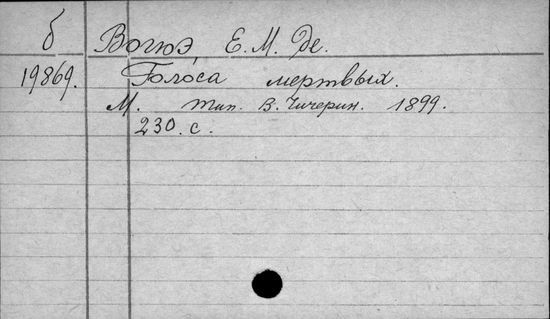 б Вогюэ Е. М. Де.
19869. Голоса мертвых.
М. тип. В. Чичерин. 1899.
230. с.